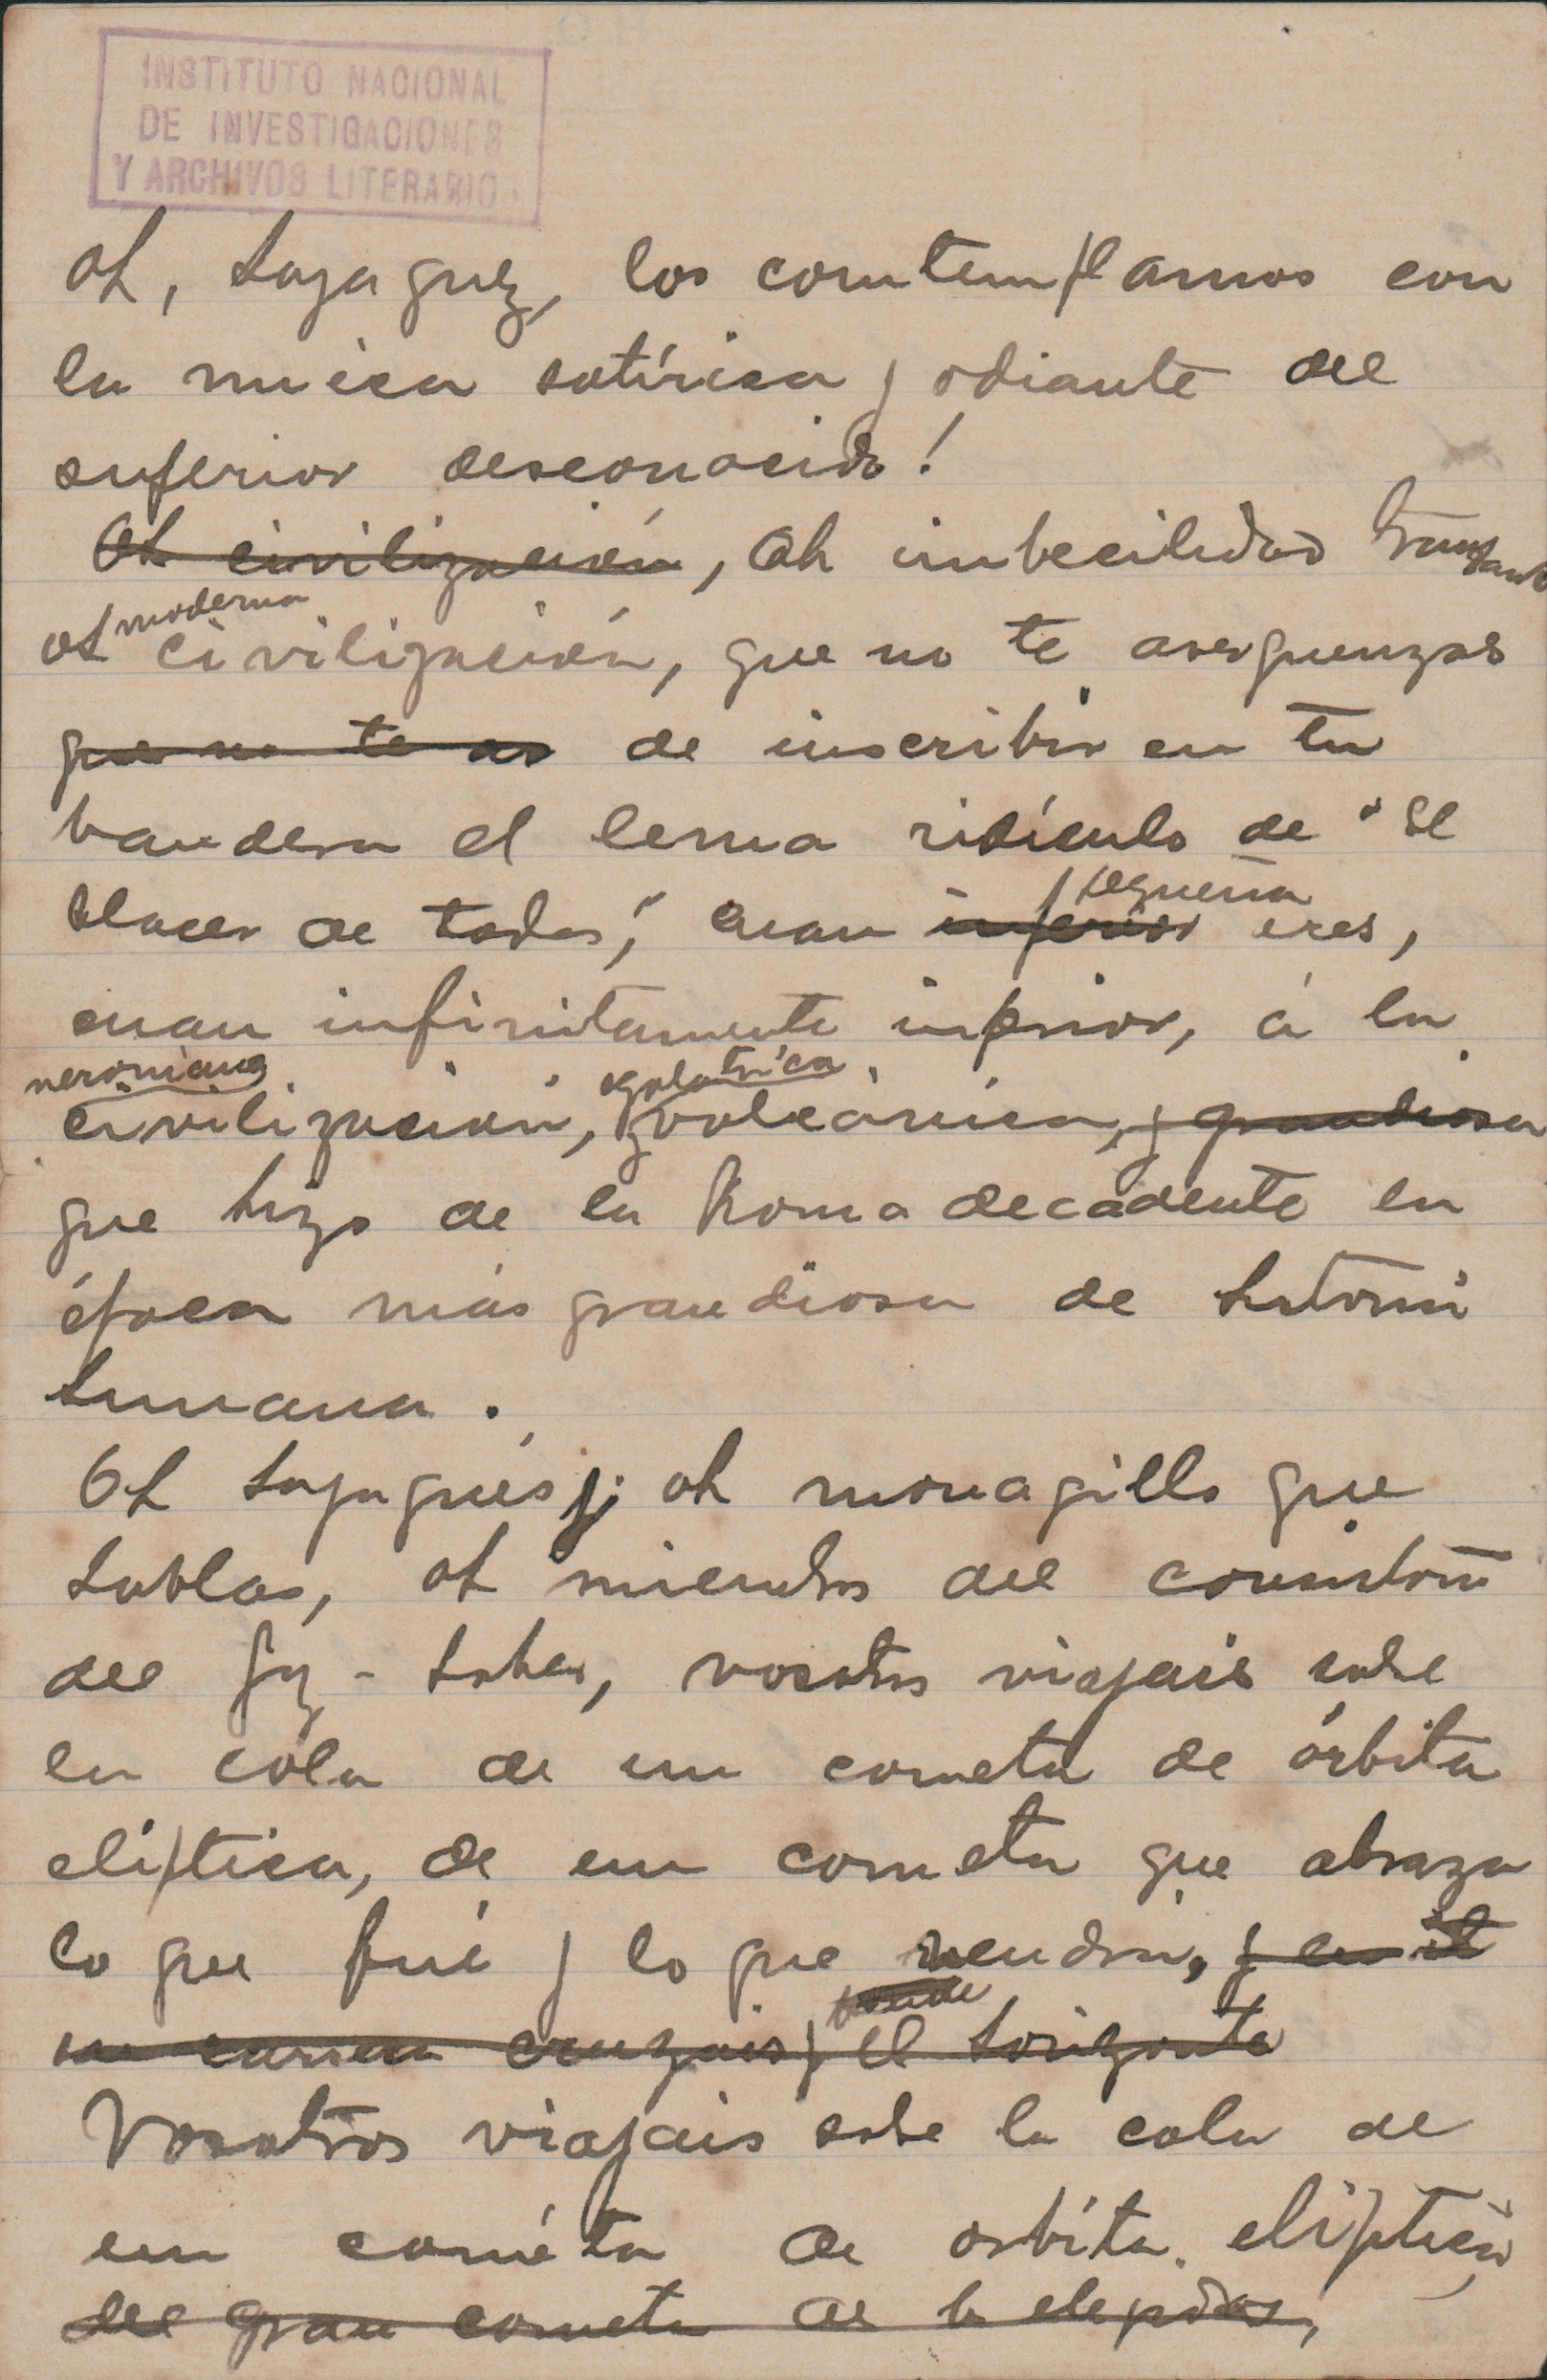 INSTITUTO NACIONAL
DE INVESTIGACIONES
Y ARCHIVOS LITERARIOS
oh, los comtemplamos con
la mueca satírica y odiante del
superior desconocido!
Oh civilización, Oh imbecilidad
oh moderna civilización, que no te averguenzas
que no te av de inscribir en tu
bandera el lema ridículo de "El
placer de todos", cuan inferior pequeña eres,
cuan infinitamente inferior, á la
neroniana
civilización, egolatrica y volcánica, y grandiosa
que hizo de la Roma decadente la
época más grandiosa de historia
humana.
Oh oh monagillo que
hablas, oh miembros del
del vosotros viajais sobre
la cola de un cometa de órbita
eliptica, de un cometa que abraza
lo que fué y lo que vendrá, y en
su carrera cruzais el horizonte
Vosotros viajais sobe la cola de
un cométa de orbíta eliptica
del gran cometa de